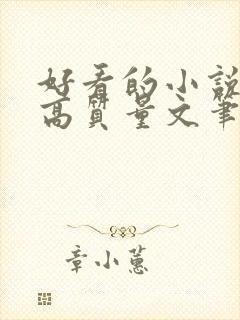 好看的小說
高質量文筆
章小蕙